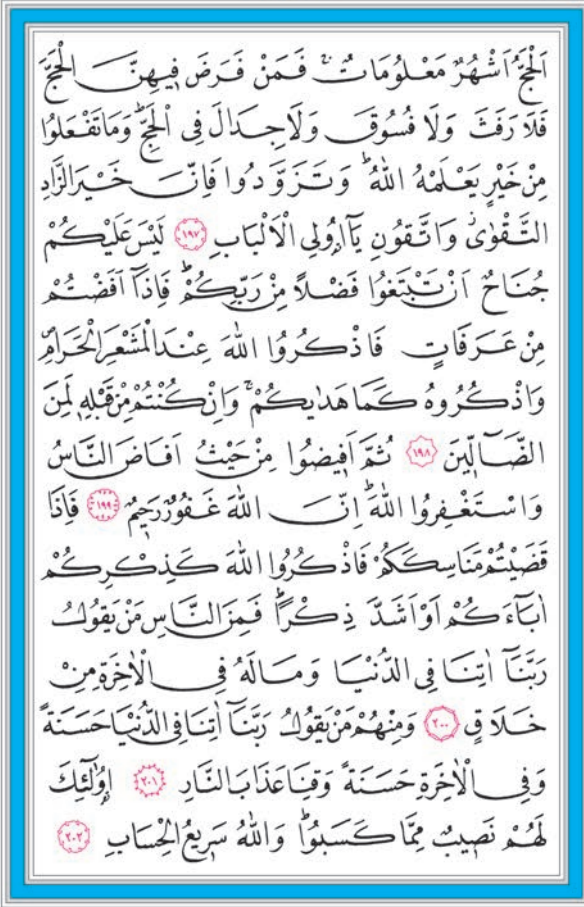 اَلْحَجُّ اَشْهُرٌ مَعْلُومَاتٌۚ فَمَنْ فَرَضَ فٖيهِنَّ الْحَجَّ
فَلَا رَفَثَ وَلَا فُسُوقَ وَلَا جِدَالَ فِى الْحَجِّؕ وَمَا تَفْعَلُوا
مِنْ خَيْرٍ يَعْلَمْهُ اللّٰهُؕ وَتَزَوَّدُوا فَاِنَّ خَيْرَ الزَّادِ
التَّقْوٰىؗ وَاتَّقُونِ يَٓا اُو۬لِى الْاَلْبَابِ ﴿١٩٧﴾ لَيْسَ عَلَيْكُمْ
جُنَاحٌ اَنْ تَبْتَغُوا فَضْلًا مِنْ رَبِّكُمْؕ فَاِذَٓا اَفَضْتُمْ
مِنْ عَرَفَاتٍ فَاذْكُرُوا اللّٰهَ عِنْدَ الْمَشْعَرِ الْحَرَامِࣕ
وَاذْكُرُوهُ كَمَا هَدٰيكُمْۚ وَاِنْ كُنْتُمْ مِنْ قَبْلِهٖ لَمِنَ
الضَّٓالّٖينَ ﴿١٩٨﴾ ثُمَّ اَفٖيضُوا مِنْ حَيْثُ اَفَاضَ النَّاسُ
وَاسْتَغْفِرُوا اللّٰهَؕ اِنَّ اللّٰهَ غَفُورٌ رَحٖيمٌ ﴿١٩٩﴾ فَاِذَا
قَضَيْتُمْ مَنَاسِكَكُمْ فَاذْكُرُوا اللّٰهَ كَذِكْرِكُمْ
اٰبَٓاءَكُمْ اَوْ اَشَدَّ ذِكْرًاؕ فَمِنَ النَّاسِ مَنْ يَقُولُ
رَبَّنَٓا اٰتِنَا فِى الدُّنْيَا وَمَا لَهُ فِى الْاٰخِرَةِ مِنْ
خَلَاقٍ ﴿٢٠٠﴾ وَمِنْهُمْ مَنْ يَقُولُ رَبَّنَٓا اٰتِنَا فِى الدُّنْيَا حَسَنَةً
وَفِى الْاٰخِرَةِ حَسَنَةً وَقِنَا عَذَابَ النَّارِ ﴿٢٠١﴾ اُو۬لٰٓئِكَ
لَهُمْ نَصٖيبٌ مِمَّا كَسَبُواؕ وَاللّٰهُ سَرٖيعُ الْحِسَابِ ﴿٢٠٢﴾